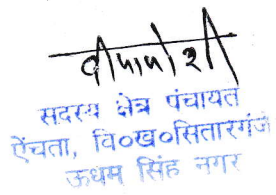 सदस्य क्षेत्र पंचायत
ऐंचता, वि०ख०सितारगंज
ऊधम सिंह नगर